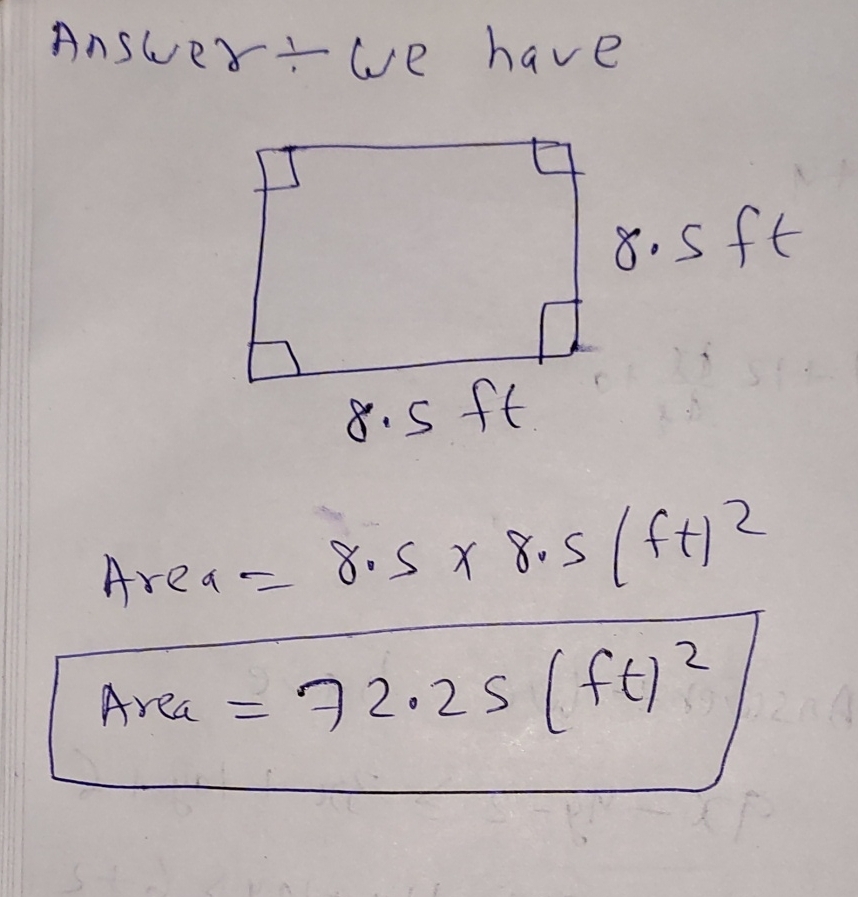 Answer÷ we have
8.5 ft
8.5 ft
Area = 8.5 x 8.5 (ft)²
Area = 72.25 (ft)²